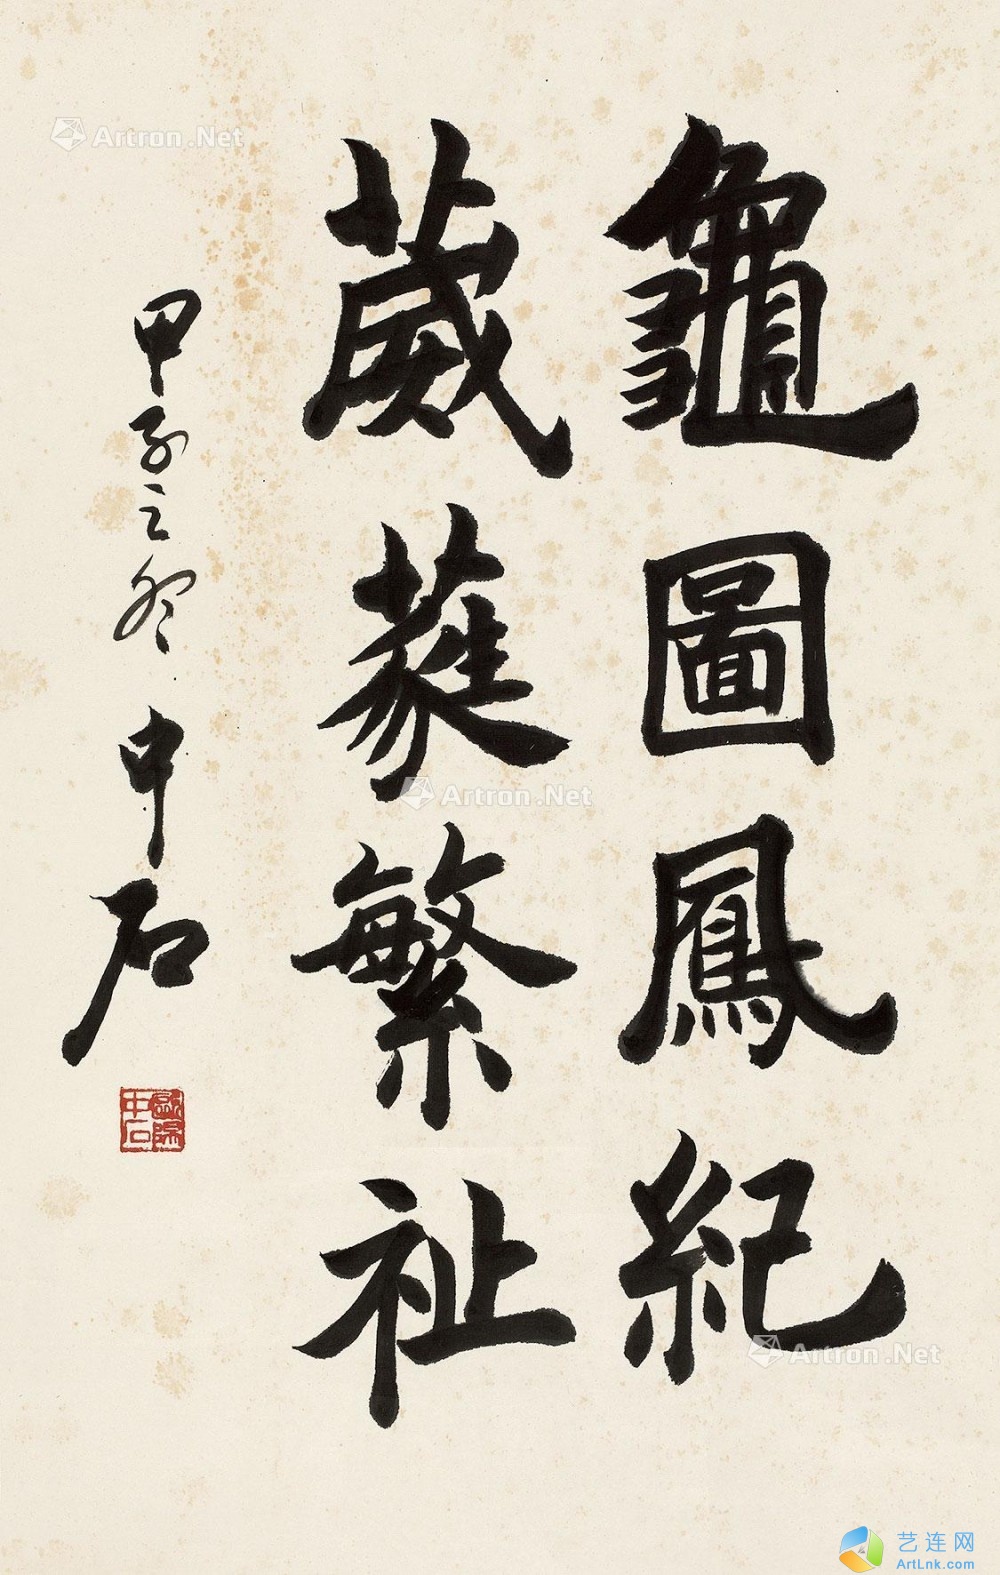 龜圖鳳紀
葳蕤繁祉
甲子之冬 中石
歐陽中石
Artron.Net
Artron.Net
Artron.Net
艺连网
ArtLnk.com